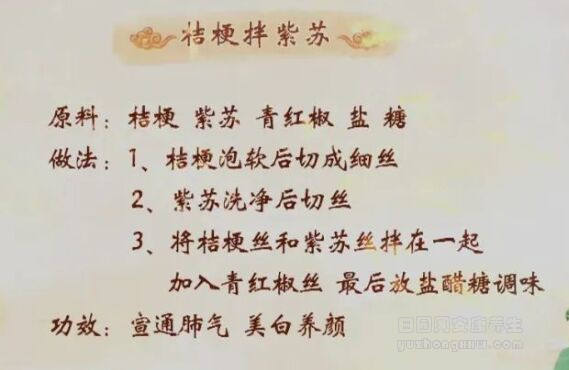 桔梗拌紫苏
原料：桔梗 紫苏 青红椒 盐 糖
做法：1、桔梗泡软后切成细丝
2、紫苏洗净后切丝
3、将桔梗丝和紫苏丝拌在一起
加入青红椒丝 最后放盐醋糖调味
功效：宣通肺气 美白养颜